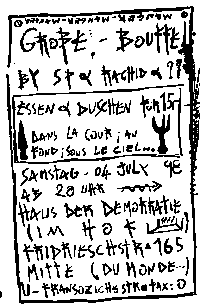 GROßE - BOUFFE
BY SP & RACHID &
ESSEN & DUSCHEN FÜR 15,-
DANS LA COUR ; AU
FOND ; SOUS LE CIEL...
SAMSTAG - 04 JULY 98
AB 20 UHR
HAUS DER DEMOKRATIE
(IM HOF
FRIDRIESCHSTR. 165
MITTE (DU MONDE...)
U - FRANSÖZICHESTR